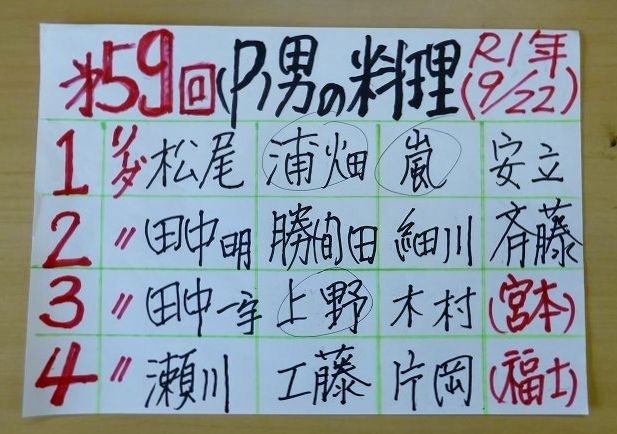 第59回(P)男の料理 R1年(9/22)
1 リーダ 松尾 浦畑 嵐 安立
2 〃 田中明 勝間田 細川 斉藤
3 〃 田中一宇 上野 木村 (宮本)
4 〃 瀬川 工藤 片岡 (福士)